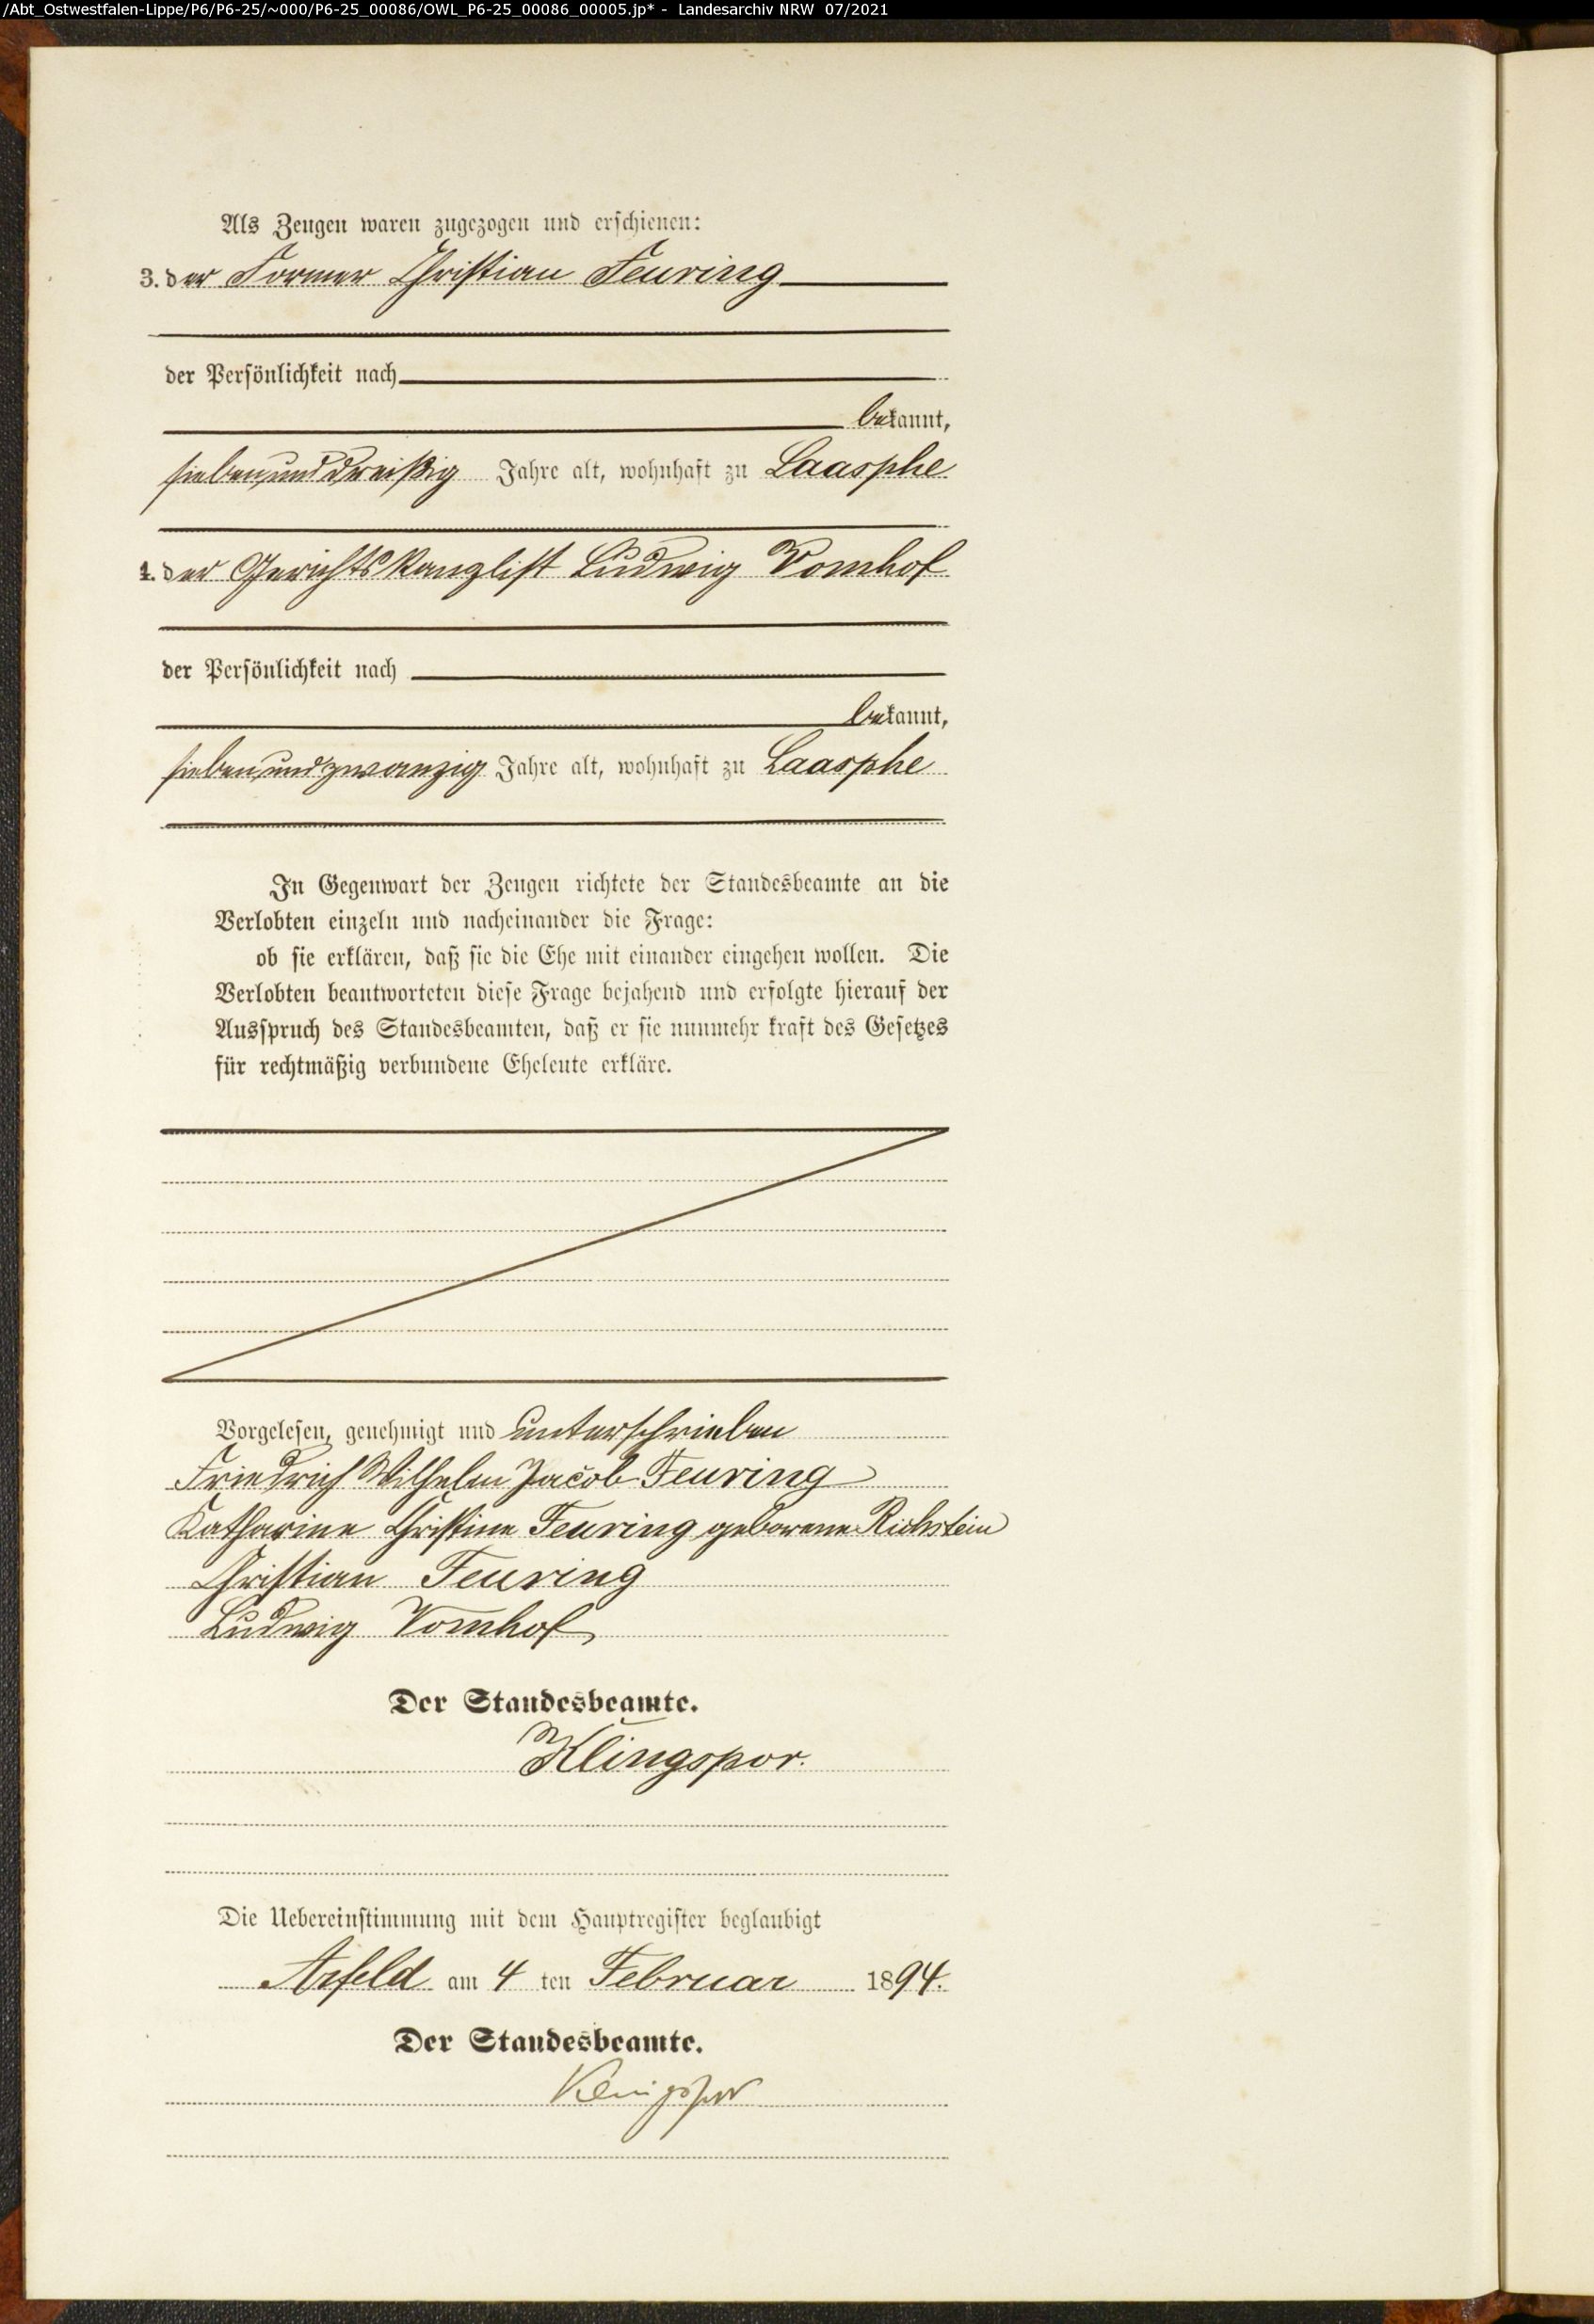 /Abt_Ostwestfalen-Lippe/P6/P6-25/~000/P6-25_00086/OWL_P6-25_00086_00005.jp* - Landesarchiv NRW 07/2021
Als Zeugen waren zugezogen und erschienen:
3. der Former Christian Feuring
der Persönlichkeit nach
bekannt,
siebenunddreißig Jahre alt, wohnhaft zu Laasphe
4. der Gerichtskanzlist Ludwig Vomhof
der Persönlichkeit nach
bekannt,
siebenundzwanzig Jahre alt, wohnhaft zu Laasphe
In Gegenwart der Zeugen richtete der Standesbeamte an die
Verlobten einzeln und nacheinander die Frage:
ob sie erklären, daß sie die Ehe mit einander eingehen wollen. Die
Verlobten beantworteten diese Frage bejahend und erfolgte hierauf der
Ausspruch des Standesbeamten, daß er sie nunmehr kraft des Gesetzes
für rechtmäßig verbundene Eheleute erkläre.
Vorgelesen, genehmigt und unterschrieben
Friedrich Wilhelm Jacob Feuring
Katharine Christine Feuring geborene Richstein
Christian Feuring
Ludwig Vomhof
Der Standesbeamte.
Klingspor.
Die Uebereinstimmung mit dem Hauptregister beglaubigt
Arfeld am 4 ten Februar 1894.
Der Standesbeamte.
Klingspor